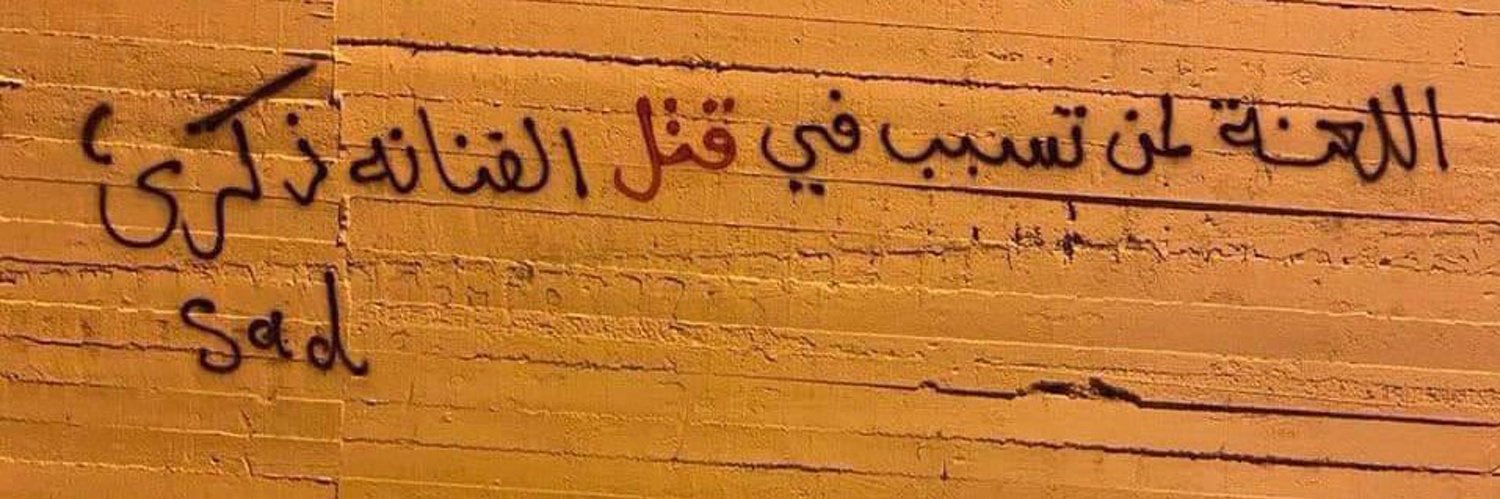 اللعنة لمن تسبب في قتل الفنانه ذكرىٰ
sad